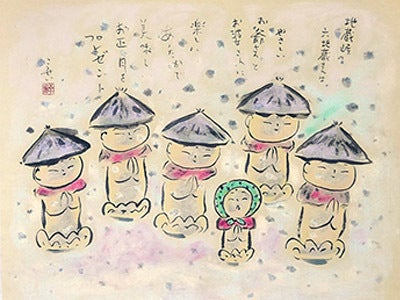 地蔵峠の
六地蔵さんは
やさしい
お爺さんと
お婆さんに
楽しい
あたたかで
美味しい
お正月を
プレゼント